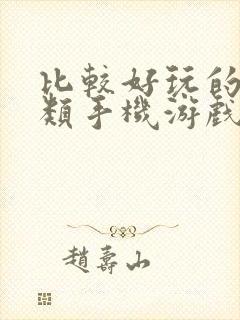 比較好玩的
類手機游戲
趙壽山